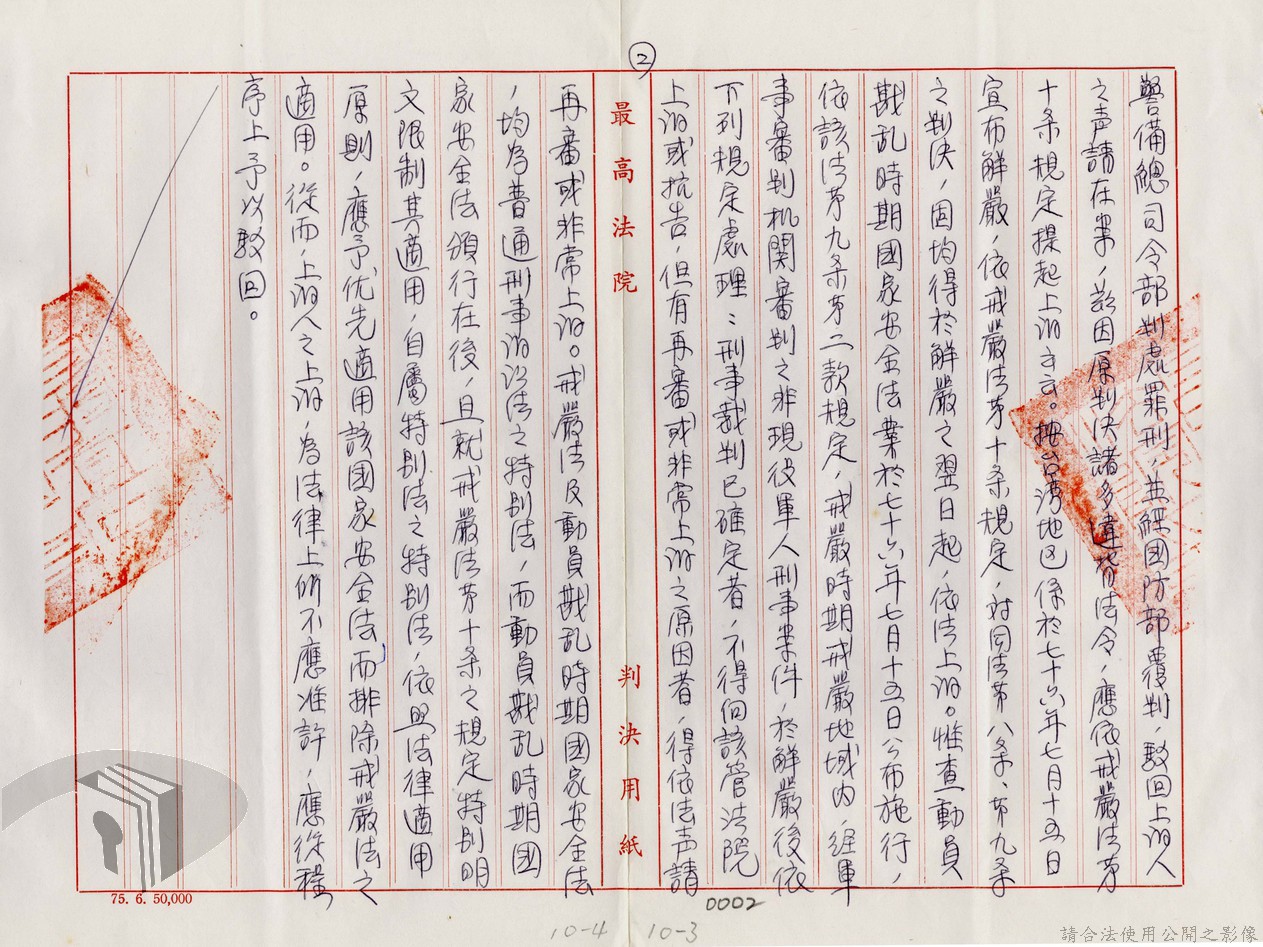 ②
警備總司令部判處罪刑，並經國防部覆判，駁回上訴人
之声請在案，茲因原判決諸多違背法令，應依戒嚴法第
十条規定提起上訴云云。按台湾地区係於七十六年七月十五日
宣布解嚴，依戒嚴法第十条規定，对同法第八条、第九条
之判決，因均得於解嚴之翌日起，依法上訴。惟查動員
戡乱時期國家安全法業於七十六年七月十五日公布施行，
依該法第九条第二款規定，戒嚴時期戒嚴地域内，经軍
事審判机関審判之非現役軍人刑事案件，於解嚴後依
下列規定處理：刑事裁判已確定者，不得向該管法院
上訴或抗告，但有再審或非常上訴之原因者，得依法声請
最高法院 判決用紙
再審或非常上訴。戒嚴法及動員戡乱時期國家安全法
，均為普通刑事訴訟法之特別法，而動員戡乱時期國
家安全法頒行在後，且就戒嚴法第十条之規定特別明
文限制其適用，自屬特別法之特別法，依照法律適用
原則，應予优先適用該國家安全法，而排除戒嚴法之
適用。從而，上訴人之上訴，為法律上所不應准許，應從程
序上予以駁回。
75. 6. 50,000
0002
10-4
10-3
請合法使用公開之影像